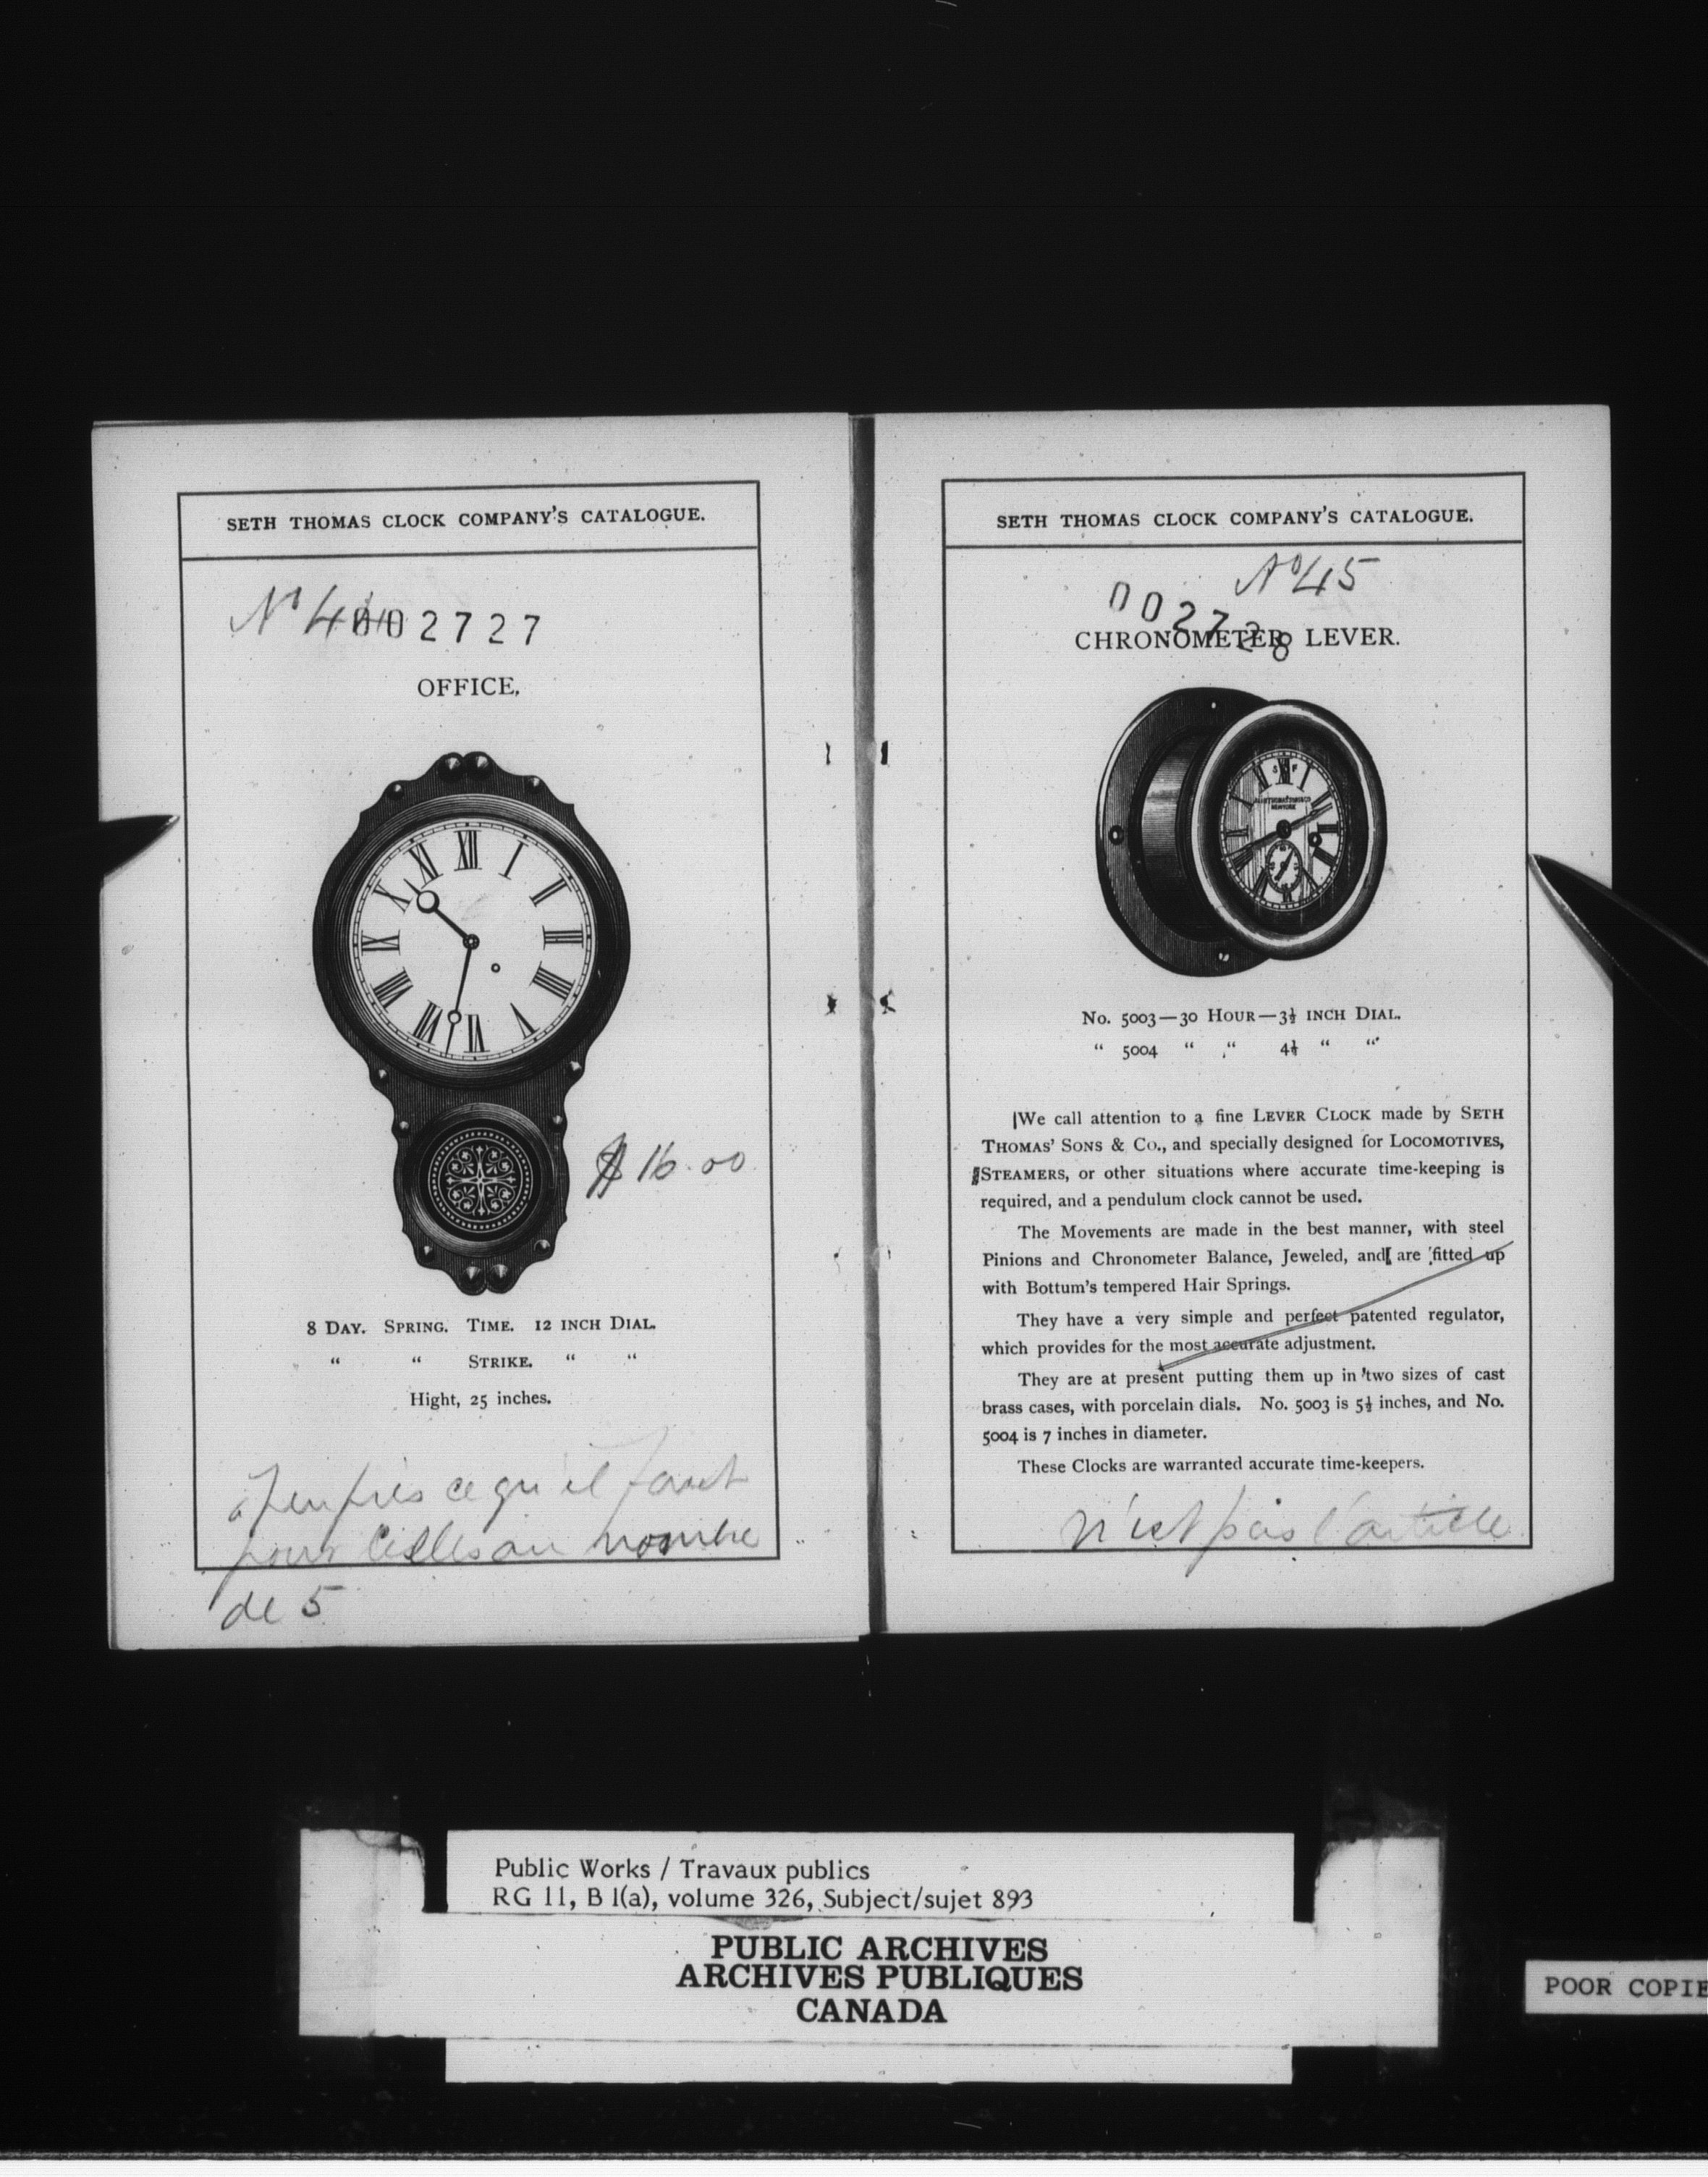 SETH THOMAS CLOCK COMPANY'S CATALOGUE.
No 44
002727
OFFICE.
$16.00
8 DAY. SPRING. TIME. 12 INCH DIAL.
“ “ STRIKE. “ “
Hight, 25 inches.
à peu près ce qu'il faut
pour au nombre
de 5
SETH THOMAS CLOCK COMPANY'S CATALOGUE.
No 45
002728
CHRONOMETER LEVER.
S F
SETH THOMAS SONS & CO
NEW YORK
No. 5003—30 HOUR—3½ INCH DIAL.
“ 5004 “ “ 4½ “ “
We call attention to a fine LEVER CLOCK made by SETH
THOMAS' SONS & CO., and specially designed for LOCOMOTIVES,
STEAMERS, or other situations where accurate time-keeping is
required, and a pendulum clock cannot be used.
The Movements are made in the best manner, with steel
Pinions and Chronometer Balance, Jeweled, and are fitted up
with Bottum's tempered Hair Springs.
They have a very simple and perfect patented regulator,
which provides for the most accurate adjustment.
They are at present putting them up in two sizes of cast
brass cases, with porcelain dials. No. 5003 is 5½ inches, and No.
5004 is 7 inches in diameter.
These Clocks are warranted accurate time-keepers.
n'est pas l'article
Public Works / Travaux publics
RG 11, B 1(a), volume 326, Subject/sujet 893
PUBLIC ARCHIVES
ARCHIVES PUBLIQUES
CANADA
POOR COPIE